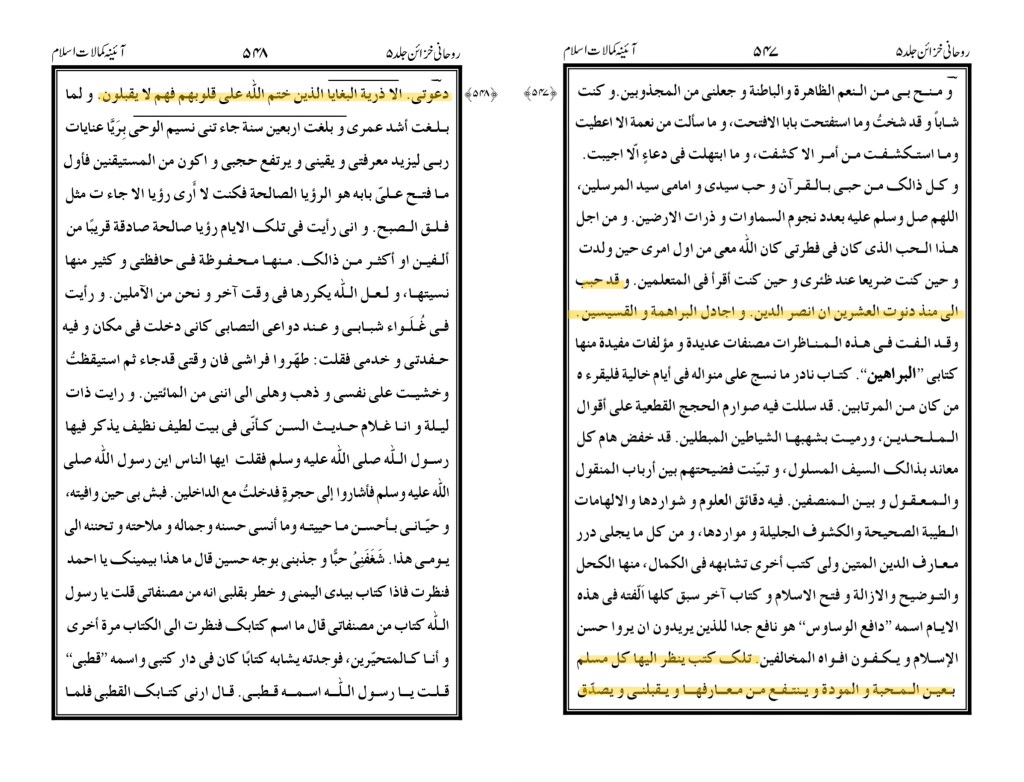 روحانی خزائن جلد ۵ ۵۴۷ آئینہ کمالات اسلام
و منح بی من النعم الظاهرة والباطنة و جعلنی من المجذوبین. و کنت
شاباً و قد شختُ وما استفتحت بابا الافتحت، و ما سألت من نعمة الا اعطیت
وما استکشفت من أمر الا کشفت، و ما ابتهلت فی دعاءٍ اَلّا اجیبت.
و کل ذالک من حبی بالقرآن و حب سیدی و امامی سید المرسلین،
اللهم صل وسلم علیه بعدد نجوم السماوات و ذرات الارضین. و من اجل
هذا الحب الذی کان فی فطرتی کان اللّٰه معی من اول امری حین ولدت
و حین کنت ضریعا عند ظئری و حین کنت أقرأ فی المتعلمین. و قد حبب
الی منذ دنوت العشرین ان انصر الدین. و اجادل البراهمة و القسیسین.
وقد الفت فی هذه المناظرات مصنفات عدیدة و مؤلفات مفیدة منها
کتابی ”البراهین“. کتاب نادر ما نسج علی منواله فی أیام خالیة فلیقرء ه
من کان من المرتابین. قد سللت فیه صوارم الحجج القطعیة علی أقوال
الملحدین، ورمیت بشهبها الشیاطین المبطلین. قد خفض هام کل
معاند بذالک السیف المسلول، و تبیّنت فضیحتهم بین أرباب المنقول
والمعقول و بین المنصفین. فیه دقائق العلوم و شواردها والالهامات
الطیبة الصحیحة والکشوف الجلیلة و مواردها، و من کل ما یجلی درر
معارف الدین المتین ولی کتب أخری تشابهه فی الکمال، منها الکحل
والتوضیح والازالة و فتح الاسلام و کتاب آخر سبق کلها الّفته فی هذه
الایام اسمه ”دافع الوساوس“ هو نافع جدا للذین یریدون ان یروا حسن
الإسلام و یکفون افواه المخالفین. تلک کتب ینظر الیها کل مسلم
بعین المحبة و المودة و ینتفع من معارفها و یقبلنی و یصدّق
﴿۵۴۷﴾
روحانی خزائن جلد ۵ ۵۴۸ آئینہ کمالات اسلام
﴿۵۴۸﴾
دعوتی. الا ذریة البغایا الذین ختم اللّٰه علی قلوبهم فهم لا یقبلون. و لما
بلغت أشد عمری و بلغت اربعین سنة جاء تنی نسیم الوحی بِرَیَّا عنایات
ربی لیزید معرفتی و یقینی و یرتفع حجبی و اکون من المستیقنین فأول
ما فتح علیّ بابه هو الرؤیا الصالحة فکنت لا أری رؤیا الا جاء ت مثل
فلق الصبح. و انی رأیت فی تلک الایام رؤیا صالحة صادقة قریبًا من
ألفین او أکثر من ذالک. منها محفوظة فی حافظتی و کثیر منها
نسیتها، و لعل اللّٰه یکررها فی وقت آخر و نحن من الآملین. و رأیت
فی غُلَواء شبابی و عند دواعی التصابی کانی دخلت فی مکان و فیه
حفدتی و خدمی فقلت: طهّروا فراشی فان وقتی قدجاء ثم استیقظتُ
وخشیت علی نفسی و ذهب وهلی الی اننی من المائتین. و رایت ذات
لیلة و انا غلام حدیث السن کأنّی فی بیت لطیف نظیف یذکر فیها
رسول اللّٰه صلی اللّٰه علیه وسلم فقلت ایها الناس این رسول اللّٰه صلی
اللّٰه علیه وسلم فأشاروا إلی حجرةٍ فدخلتُ مع الداخلین. فبش بی حین وافیته،
و حیّانی بأحسن ما حییته وما أنسی حسنه وجماله و ملاحته و تحننه الی
یومی هذا. شَغَفَنِیْ حبًّا و جذبنی بوجه حسین قال ما هذا بیمینک یا احمد
فنظرت فاذا کتاب بیدی الیمنی و خطر بقلبی انه من مصنفاتی قلت یا رسول
اللّٰه کتاب من مصنفاتی قال ما اسم کتابک فنظرت الی الکتاب مرة أخری
و أنا کالمتحیّرین، فوجدته یشابه کتابًا کان فی دار کتبی و اسمه ”قطبی“
قلت یا رسول اللّٰه اسمه قطبی. قال ارنی کتابک القطبی فلما